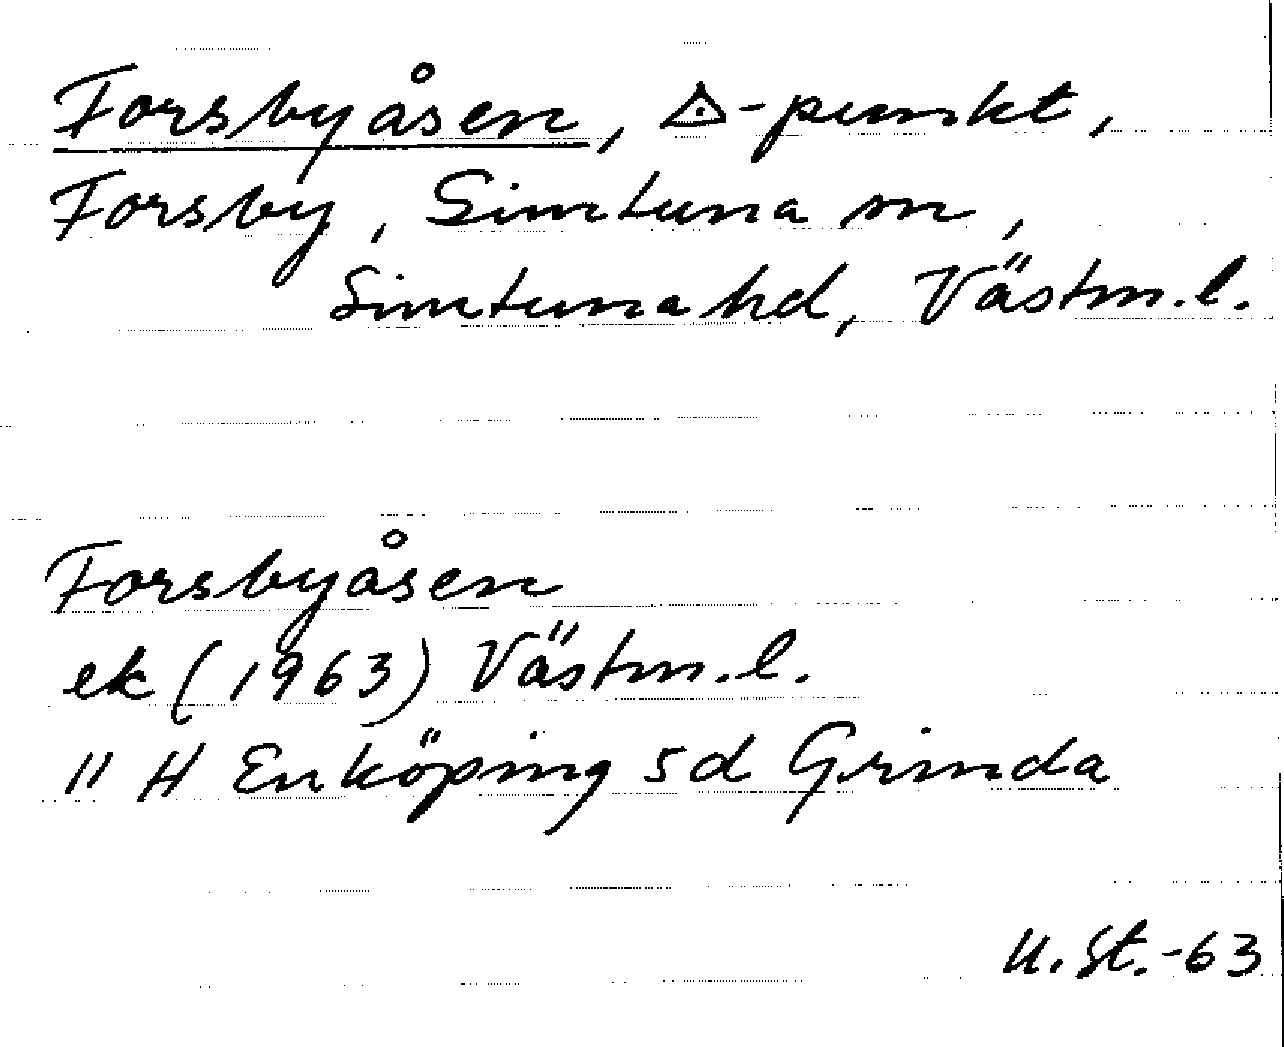 Forsbyåsen, △-punkt,
Forsby, Simtuna sn,
Simtuna hd, Västm.l.
Forsbyåsen
ek (1963) Västm.l.
" H Enköping 5d Grinda
U.St.-63